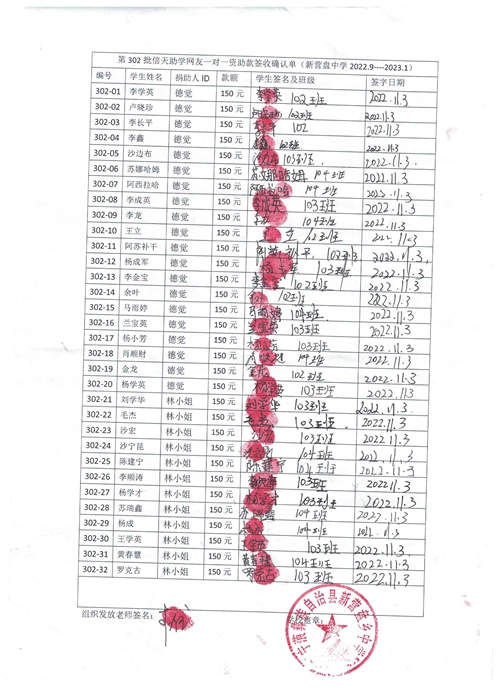 第 302 批信天助学网友一对一资助款签收确认单（新营盘中学 2022.9----2023.1）
编号 学生姓名 捐助人 ID 款额 学生签名及班级 签字日期
302-01 李学英 德觉 150 元 李学英 102班 2022.11.3
302-02 卢晓珍 德觉 150 元 102班 2022.11.3
302-03 李长平 德觉 150 元 102 2022.11.3
302-04 李鑫 德觉 150 元 102班 2022.11.3
302-05 沙边布 德觉 150 元 103班 2022.11.3
302-06 苏娜哈姆 德觉 150 元 104班 2022.11.3
302-07 阿西拉哈 德觉 150 元 104班 2022.11.3
302-08 李成英 德觉 150 元 李成英 103班 2022.11.3
302-09 李龙 德觉 150 元 104班 2022.11.3
302-10 王立 德觉 150 元 立 102班 2022.11.3
302-11 阿苏补干 德觉 150 元 102班 2022.11.3
302-12 杨成军 德觉 150 元 103班 2022.11.3
302-13 李金宝 德觉 150 元 102班 2022.11.3
302-14 余叶 德觉 150 元 102班 2022.11.3
302-15 马雨婷 德觉 150 元 104班 2022.11.3
302-16 兰宝英 德觉 150 元 103班 2022.11.3
302-17 杨小芳 德觉 150 元 103班 2022.11.3
302-18 肖顺财 德觉 150 元 104班 2022.11.3
302-19 金龙 德觉 150 元 102班 2022.11.3
302-20 杨学英 德觉 150 元 103班 2022.11.3
302-21 刘学华 林小姐 150 元 刘学华 103班 2022.11.3
302-22 毛杰 林小姐 150 元 毛杰 103班 2022.11.3
302-23 沙宏 林小姐 150 元 103班 2022.11.3
302-24 沙宁昆 林小姐 150 元 104班 2022.11.3
302-25 陈建宁 林小姐 150 元 陈建宁 104班 2022.11.3
302-26 李顺涛 林小姐 150 元 103班 2022.11.3
302-27 杨学才 林小姐 150 元 103班 2022.11.3
302-28 苏瑞鑫 林小姐 150 元 104班 2022.11.3
302-29 杨成 林小姐 150 元 104班 2022.11.3
302-30 王学英 林小姐 150 元 103班 2022.11.3
302-31 黄春慧 林小姐 150 元 黄春慧 104班 2022.11.3
302-32 罗克古 林小姐 150 元 103班 2022.11.3
组织发放老师签名： 学校盖章：
宁蒗彝族自治县新营盘乡中学